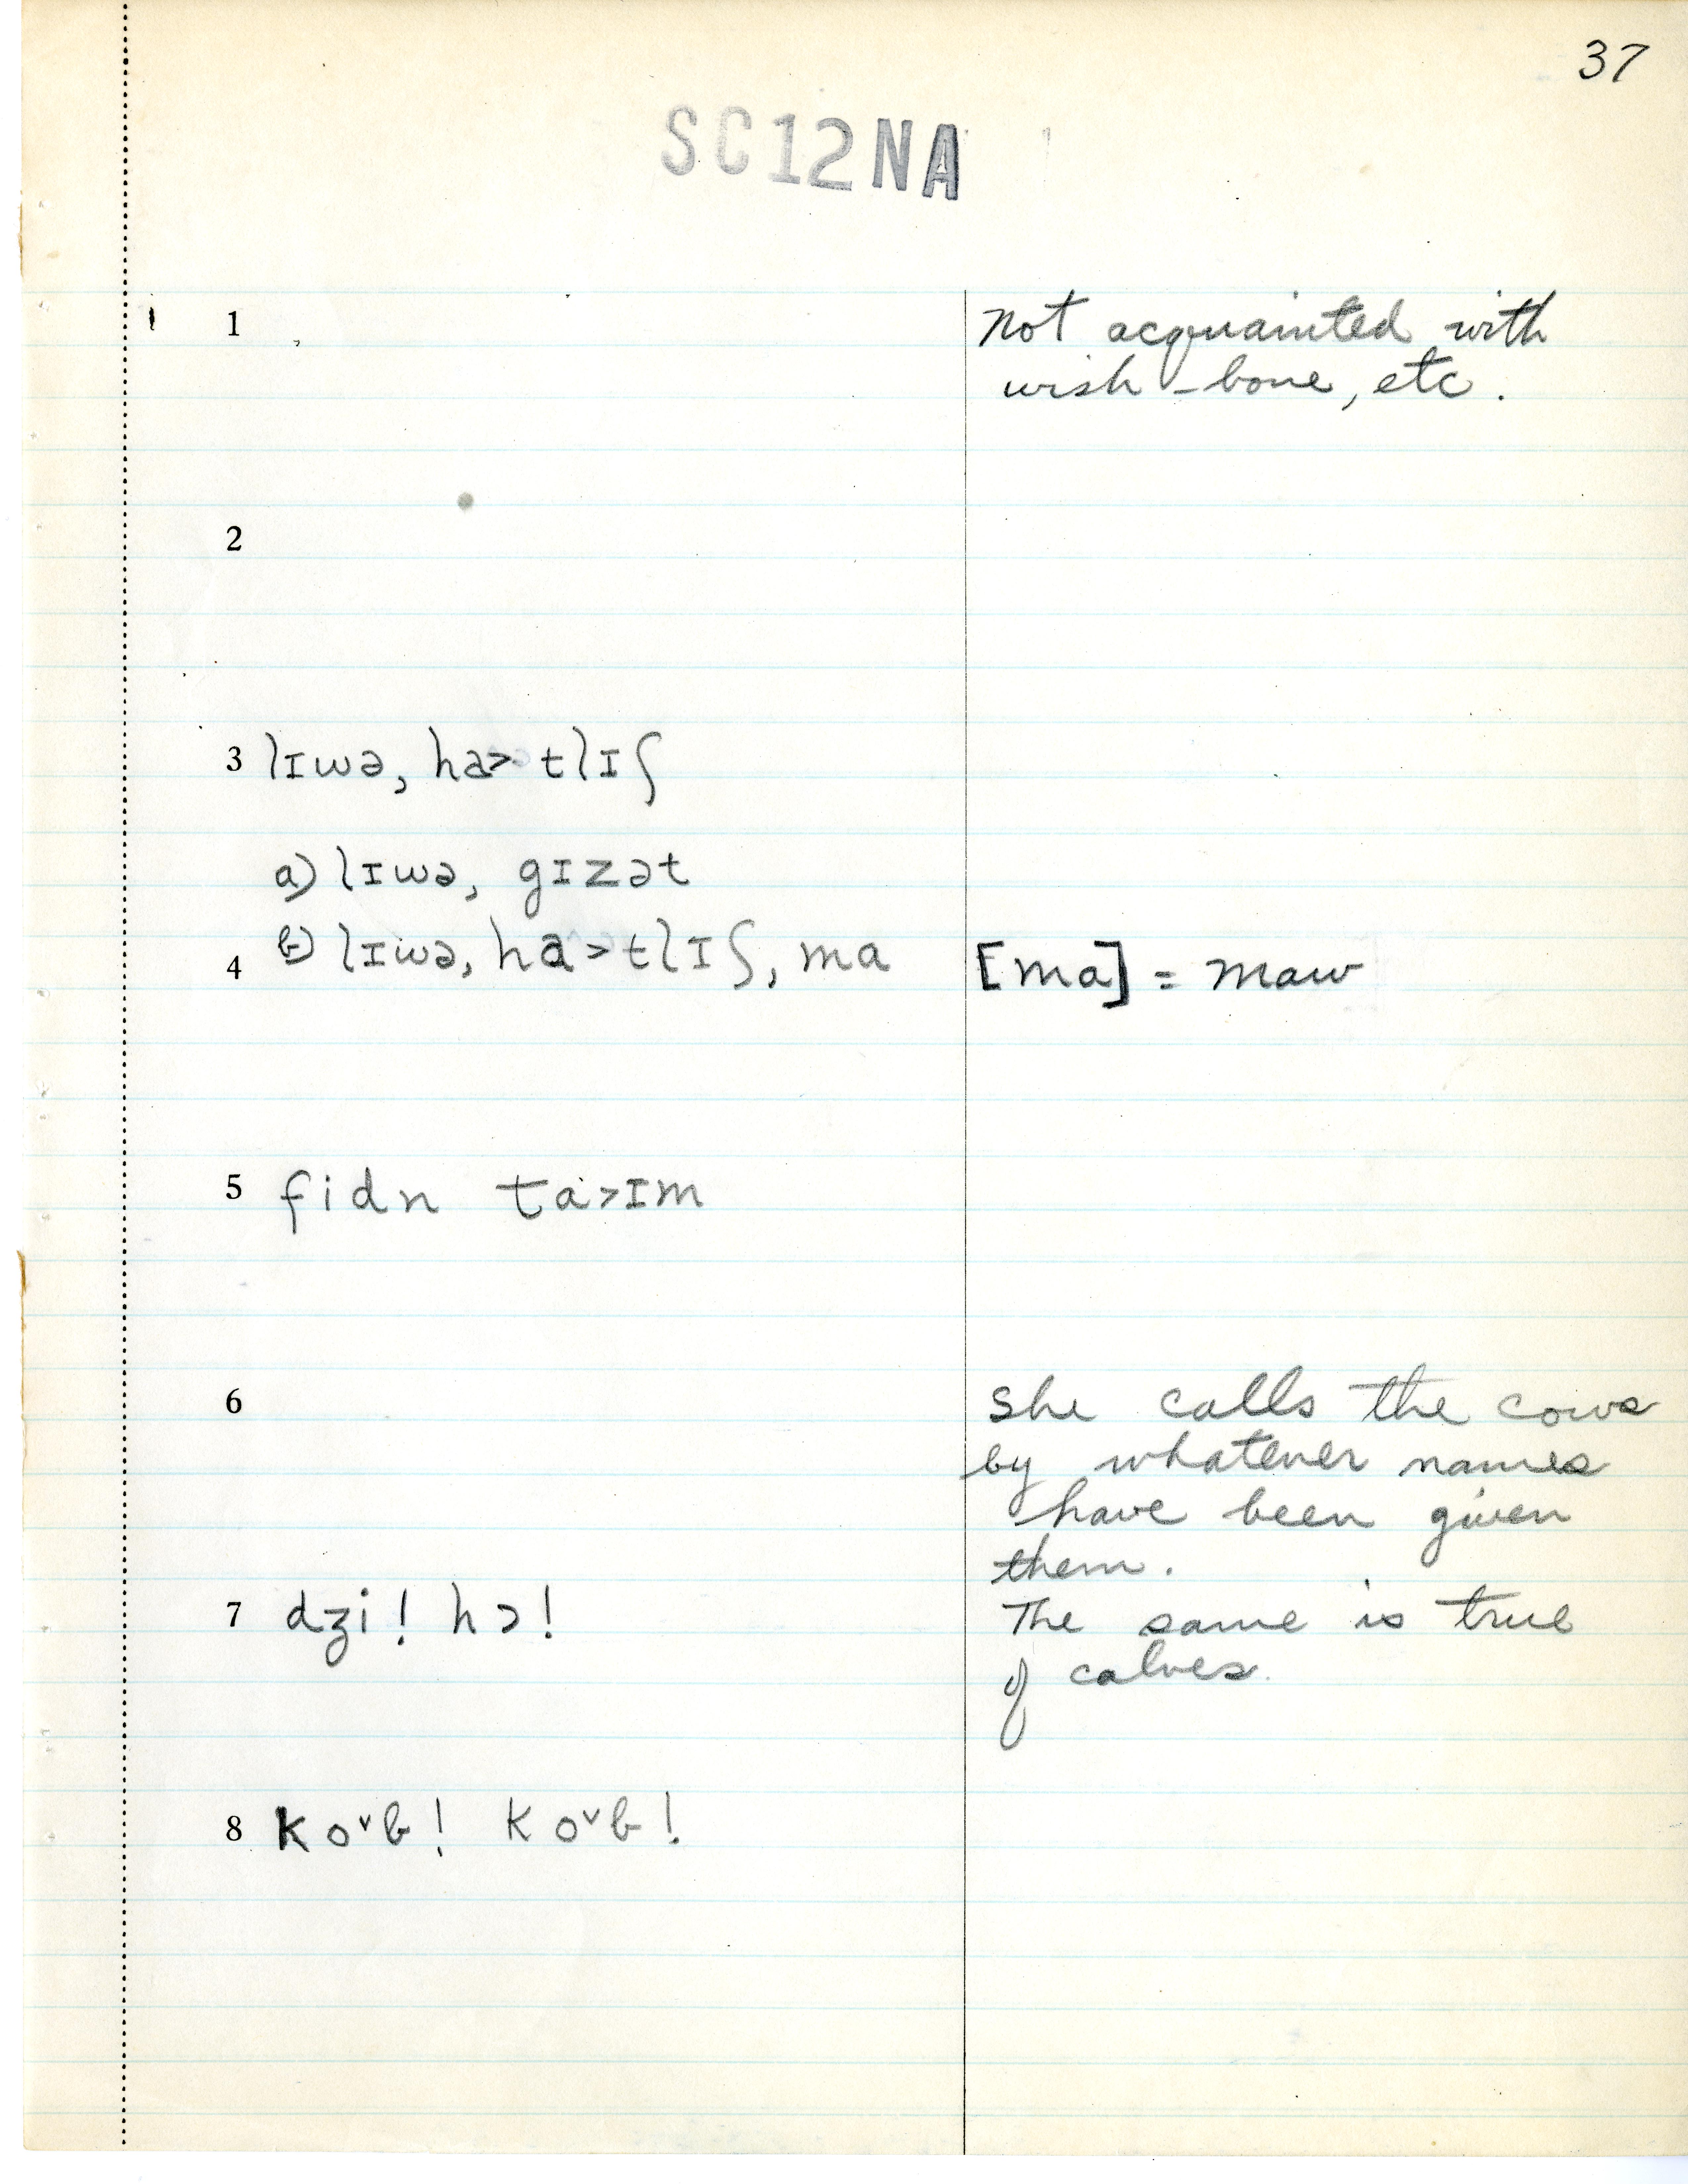 37
SC12NA
1 not acquainted with
wish-bone, etc.
2
3 lɪwə, ha> tlɪʃ
a) lɪwə, gɪzət
4 b) lɪwə, ha>tlɪʃ, ma [ma] = maw
5 fidn ta>ɪm
6 She calls the cows
by whatever names
have been given
them.
7 dʒi! hɔ! The same is true
of calves.
8 ko˅b! ko˅b!